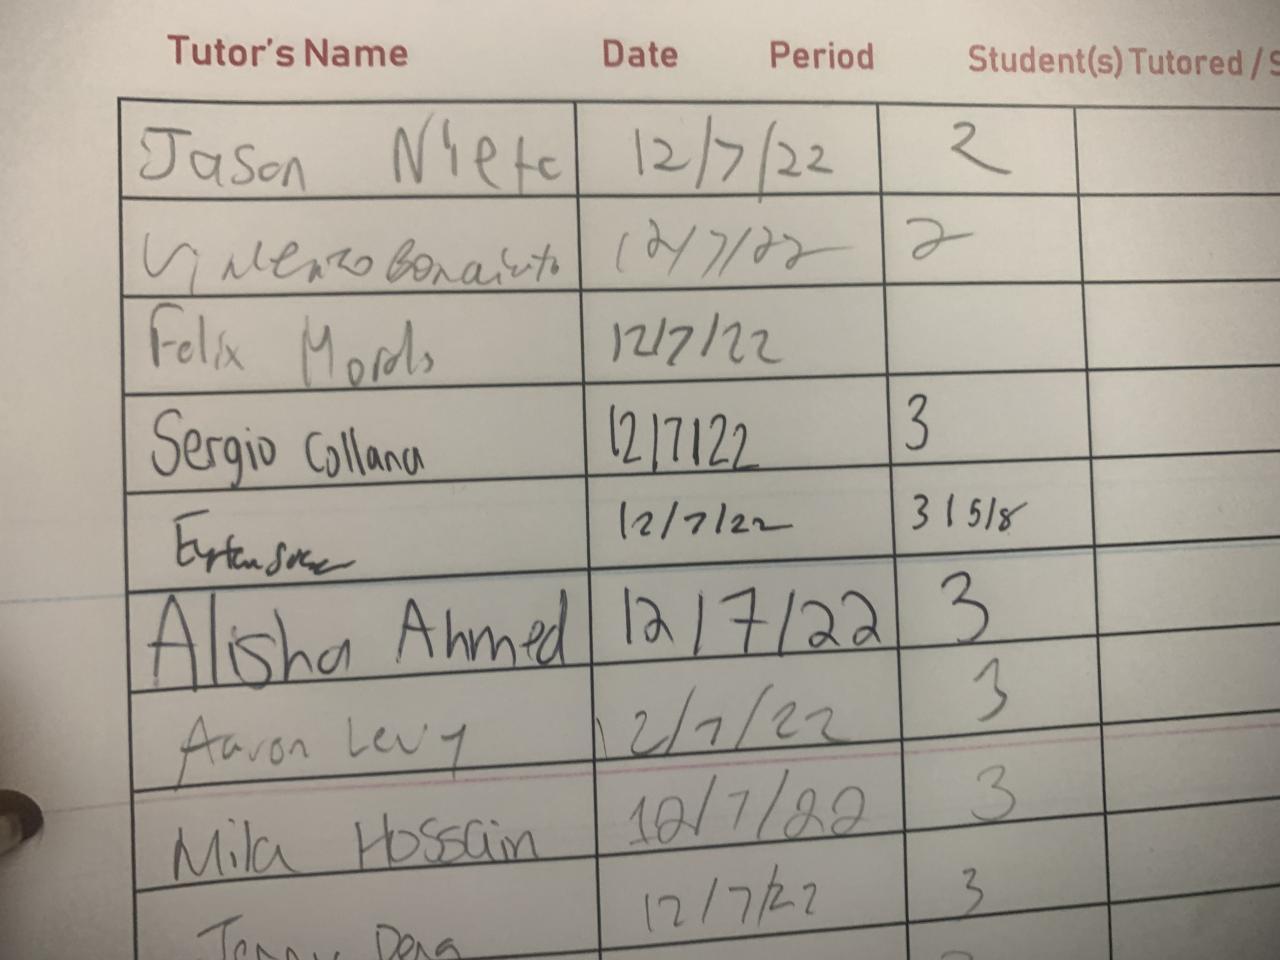 Tutor's Name Date Period Student(s) Tutored / S
Jason Nieto 12/7/22 2
Vincenzo Bonaiuto 12/7/22 2
Felix 12/7/22
Sergio Collana 12/7/22 3
12/7/22 3/5/8
Alisha Ahmed 12/7/22 3
Aaron Levy 12/7/22 3
Mila Hossain 12/7/22 3
12/7/22 3